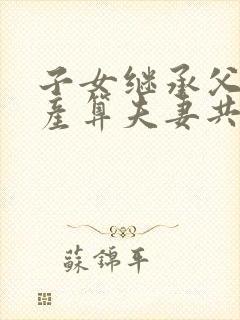 子女继承父
产算夫妻共
蘇錦平